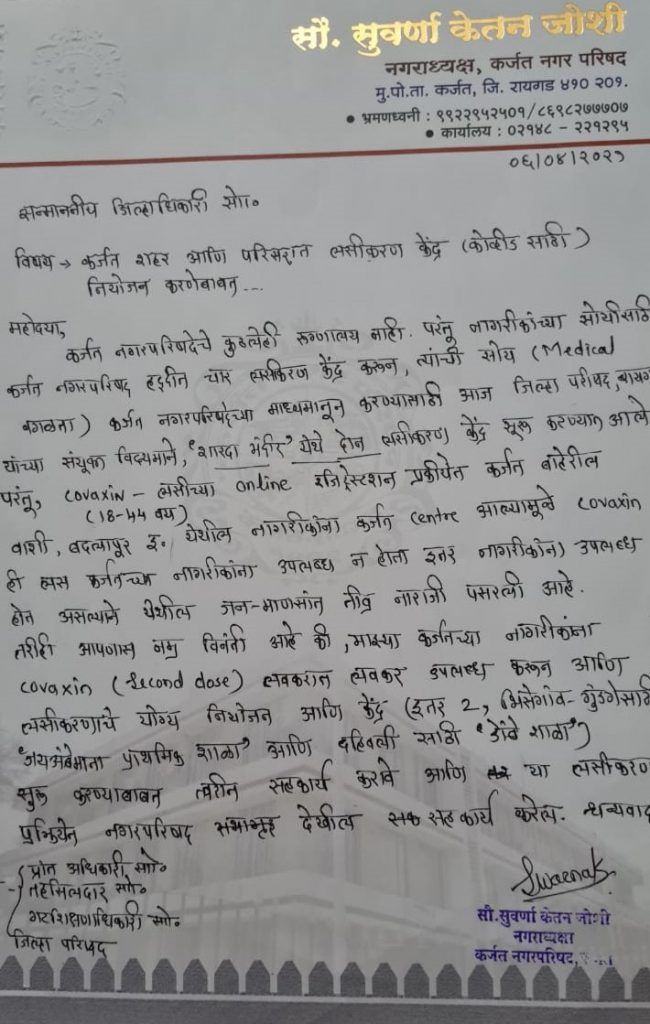 सौ. सुवर्णा केतन जोशी
नगराध्यक्ष, कर्जत नगर परिषद
मु.पो.ता. कर्जत, जि. रायगड ४१० २०१.
• भ्रमणध्वनी : ९९२२९५२५०१/८६९८२७७७०७
• कार्यालय : ०२१४८ - २२१२९५
०६/०४/२०२१
सन्माननीय जिल्हाधिकारी सो॰
विषय → कर्जत शहर आणि परिसरात लसीकरण केंद्र (कोव्हीड साठी)
नियोजन करणेबाबत...
महोदया,
कर्जत नगरपरिषदेचे कुठलेही रुग्णालय नाही. परंतू नागरीकांच्या सोयीसाठी
कर्जत नगरपरिषद हद्दीत चार लसीकरण केंद्र करून, त्यांची सोय (Medical
वगळता) कर्जत नगरपरिषदेच्या माध्यमातून करण्यासाठी आज जिल्हा परीषद,
यांच्या संयुक्त विद्यमाने, 'शारदा मंदीर' येथे दोन लसीकरण केंद्र सूरू करण्यात आले
परंतू, covaxin - लसीच्या online रजिस्ट्रेशन प्रक्रीयेत कर्जत बाहेरील
(18-44 वय)
वाशी, बदलापूर इ. येथील नागरीकांना कर्जत centre आल्यामूळे covaxin
ही लस कर्जतच्या नागरीकांना उपलब्ध न होता इतर नागरीकांना उपलब्ध
होत असल्याने येथील जन-माणसांत तीव्र नाराजी पसरली आहे.
तरीही आपणास नम्र विनंती आहे की, माझ्या कर्जतच्या नागरीकांना
covaxin (second dose) लवकरात लवकर उपलब्ध करून आणि
लसीकरणाचे योग्य नियोजन आणि केंद्र (इतर 2, भिसेगांव-गुंडगेसाठी
'जयअंबेमाता प्राथमिक शाळा' आणि दहिवली साठी 'शाळा')
सुरू करण्याबाबत त्वरीत सहकार्य करावे आणि या लसीकरण
प्रक्रियेत नगरपरिषद सभागृह देखील सहकार्य करेल. धन्यवाद
प्रांत अधिकारी सो॰
तहसिलदार सो॰
गटशिक्षणाधिकारी सो॰
जिल्हा परिषद
सौ.सुवर्णा केतन जोशी
नगराध्यक्षा
कर्जत नगरपरिषद,